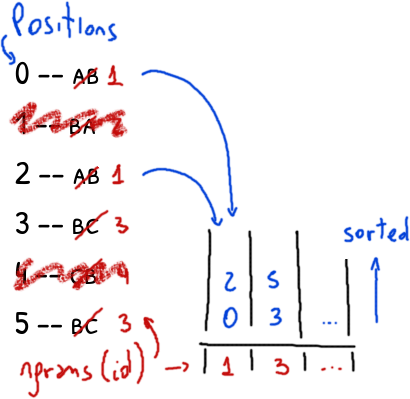 Positions
0 -- AB 1
1 -- BA 2
2 -- AB 1
3 -- BC 3
4 -- CB 4
5 -- BC 3
ngrams (id) → | 1 | 3 | ... |
sorted
2 5
0 3 ...